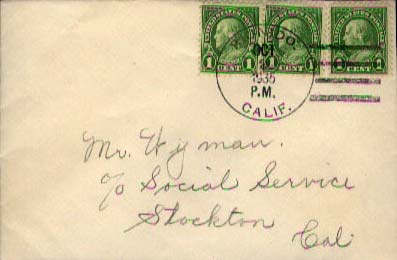 UNITED STATES POSTAGE UNITED STATES POSTAGE UNITED STATES POSTAGE
1 CENT 1 1 CENT 1 1 CENT 1
OCT
1935
P.M.
CALIF.
Mr. Wyman.
c/o Social Service
Stockton
Cal.